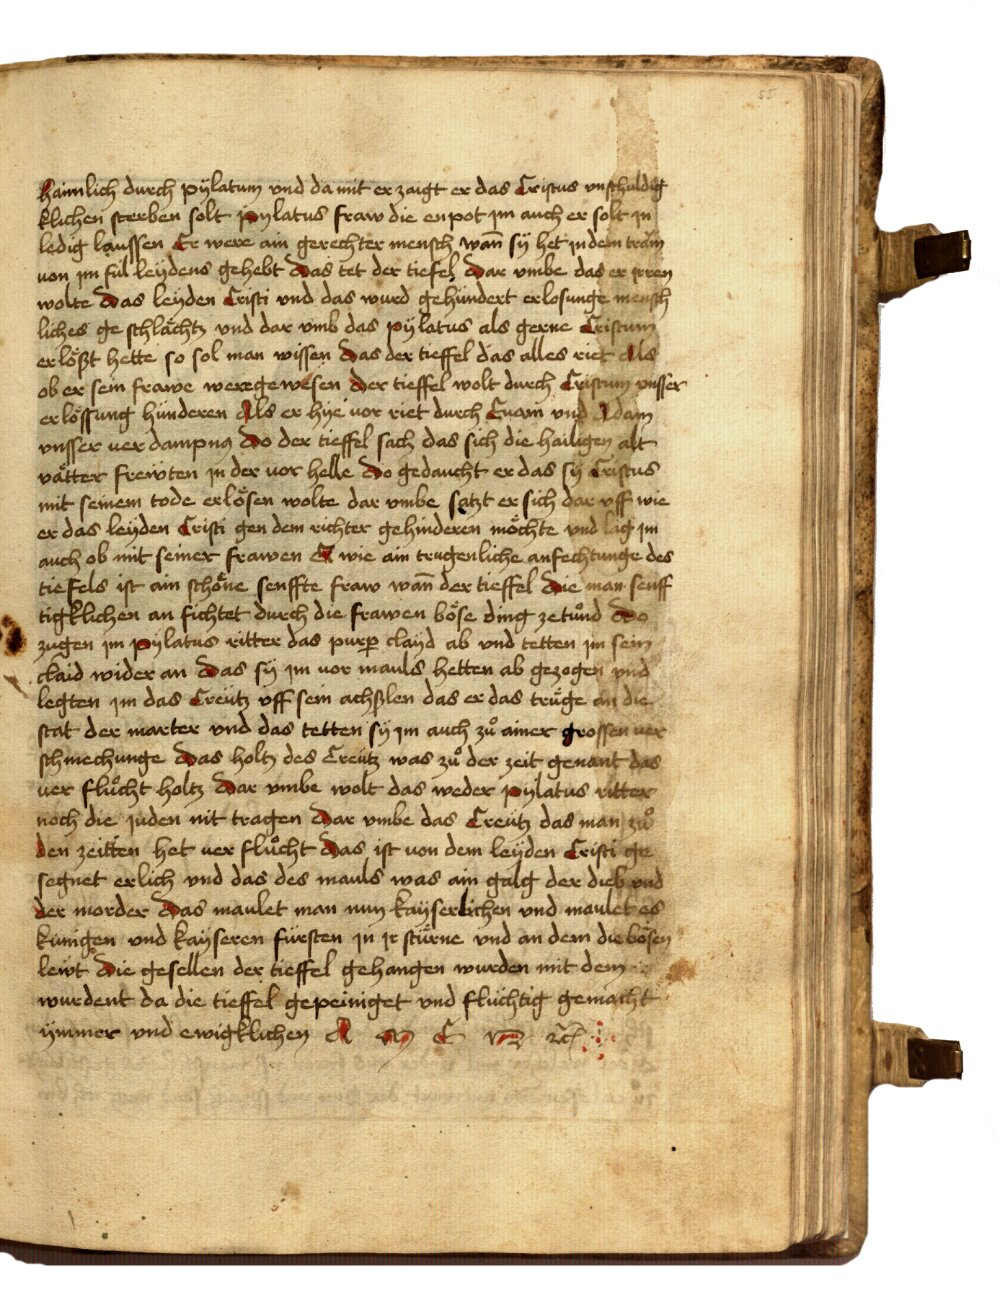 55
haimlich durch pÿlatum vnd da mit er zaigt er das Cristus vnschuldig
klichen sterben solt pylatus fraw die enpot jm auch er solt jn
ledig laussen Er were ain gerechter mensch wan̄ sÿ het jn dem tram
von jm fúl leÿdens gehebt Das tet der tiefel Dar vmbe das er jrren
wolte Das leÿden Cristi vnd das wurd gehúndert erlosunge mensch
liches ge schlǎchtz vnd dar vmb das pÿlatus als gerne Cristum
erlo᷅ßt hette so sol man wissen Das der tieffel das alles riet Als
ob er sein frawe were gewesen Der tieffel wolt durch Cristum vnsser
erlo᷅ssung húnderen Als er hÿe vor riet durch Euam vnd Adam
vnsser ver dampnǫ Do der tieffel sach das sich die hailigen alt
vǎtter frewten jn der vor helle Do gedaucht er das sÿ Cristus
mit seinem tode erlo᷅sen wolte dar vmbe satzt er sich dar vff wie
er das leÿden Cristi gen dem richter gehinderen mo᷅chte vnd lig jm
auch ob mit seiner frawen E wie ain trugenliche anfechtunge des
tiefels ist ain scho᷅ne senffte fraw wan̄ der tieffel Die man senff
tigklichen an fichtet durch die frawen bo᷅se ding zetůnd Do
zugen jm pÿlatus ritter das purꝑ clayd ab vnd tetten jm sein
claid wider an Das sÿ jm vor mauls hetten ab gezogen vnd
legten jm das Creútz vff sein achßlen das er das trúge an die
stat der marter vnd das tetten sÿ jm auch zů ainer grossen ver
schmechunge Das holtz des Creútz was zů der zeit genant das
ver flůcht holtz Dar vmbe wolt das weder pÿlatus ritter
noch die juden nit tragen Dar vmbe das Creútz das man zů
den zeitten het ver flůcht Das ist von dem leÿden Cristi ge
segnet erlich vnd das des mauls was ain galg der dieb vnd
der morder Das maulet man nun kaÿserlichen vnd maulet es
kúnigen vnd kaÿseren fúrsten jn jr stúrne vnd an dem die bo᷅sen
lewt Die gesellen der tieffel gehangen wurden mit dem
wurdent da die tieffel gepeiniget vnd fluchtig gemacht
ÿmmer vnd ewigklichen A M E N